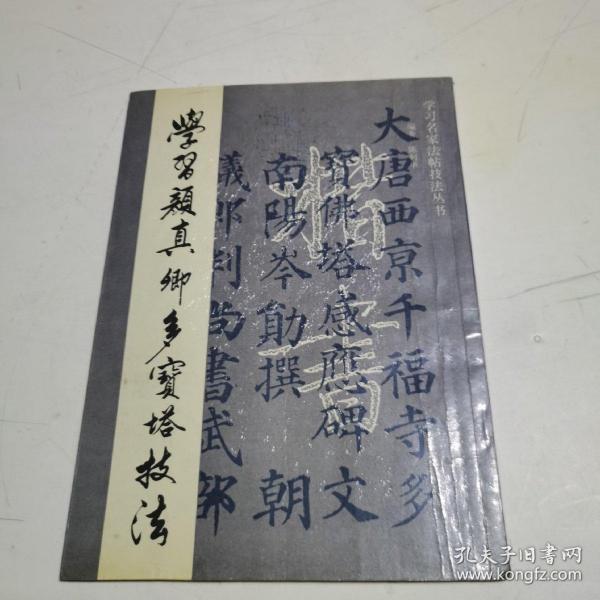 學習顏真卿多寶塔技法
学习名家法帖技法丛书
楷書
大唐西京千福寺多
寶佛塔感應碑文
南陽岑勛撰 朝
議郎判尚書武部
孔夫子旧书网
www.kongfz.com